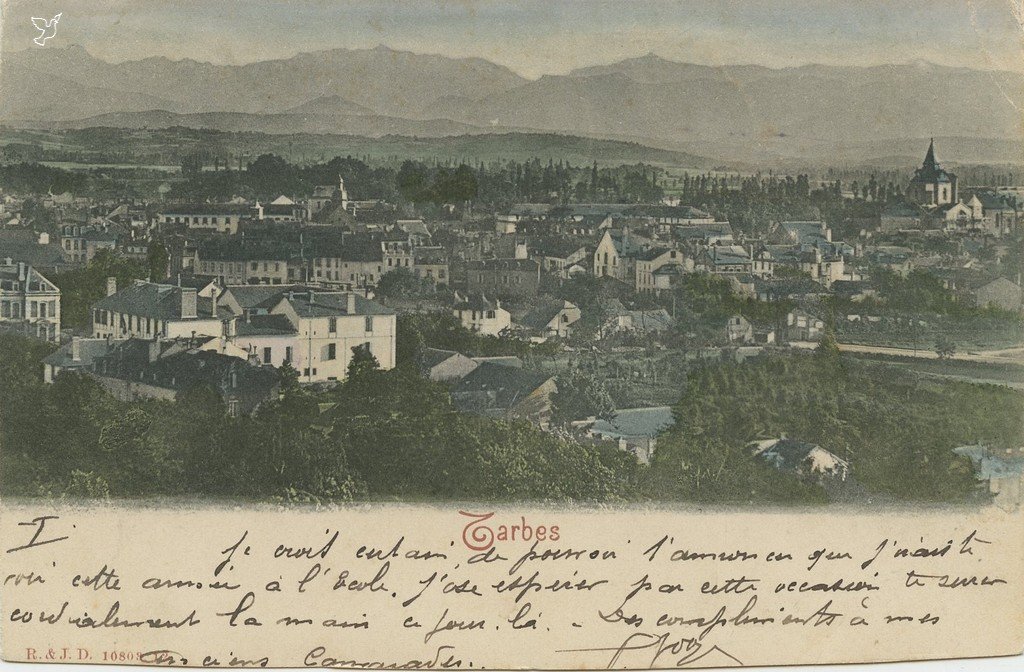 Tarbes
I.
Je crois certain, de pouvoir t'annoncer que j'irais te
voir cette année à l'École. J'ose espérer par cette occasion te serrer
cordialement la main ce jour.là. - Des compliments à mes
anciens Camarades..
R. & J. D. 10803